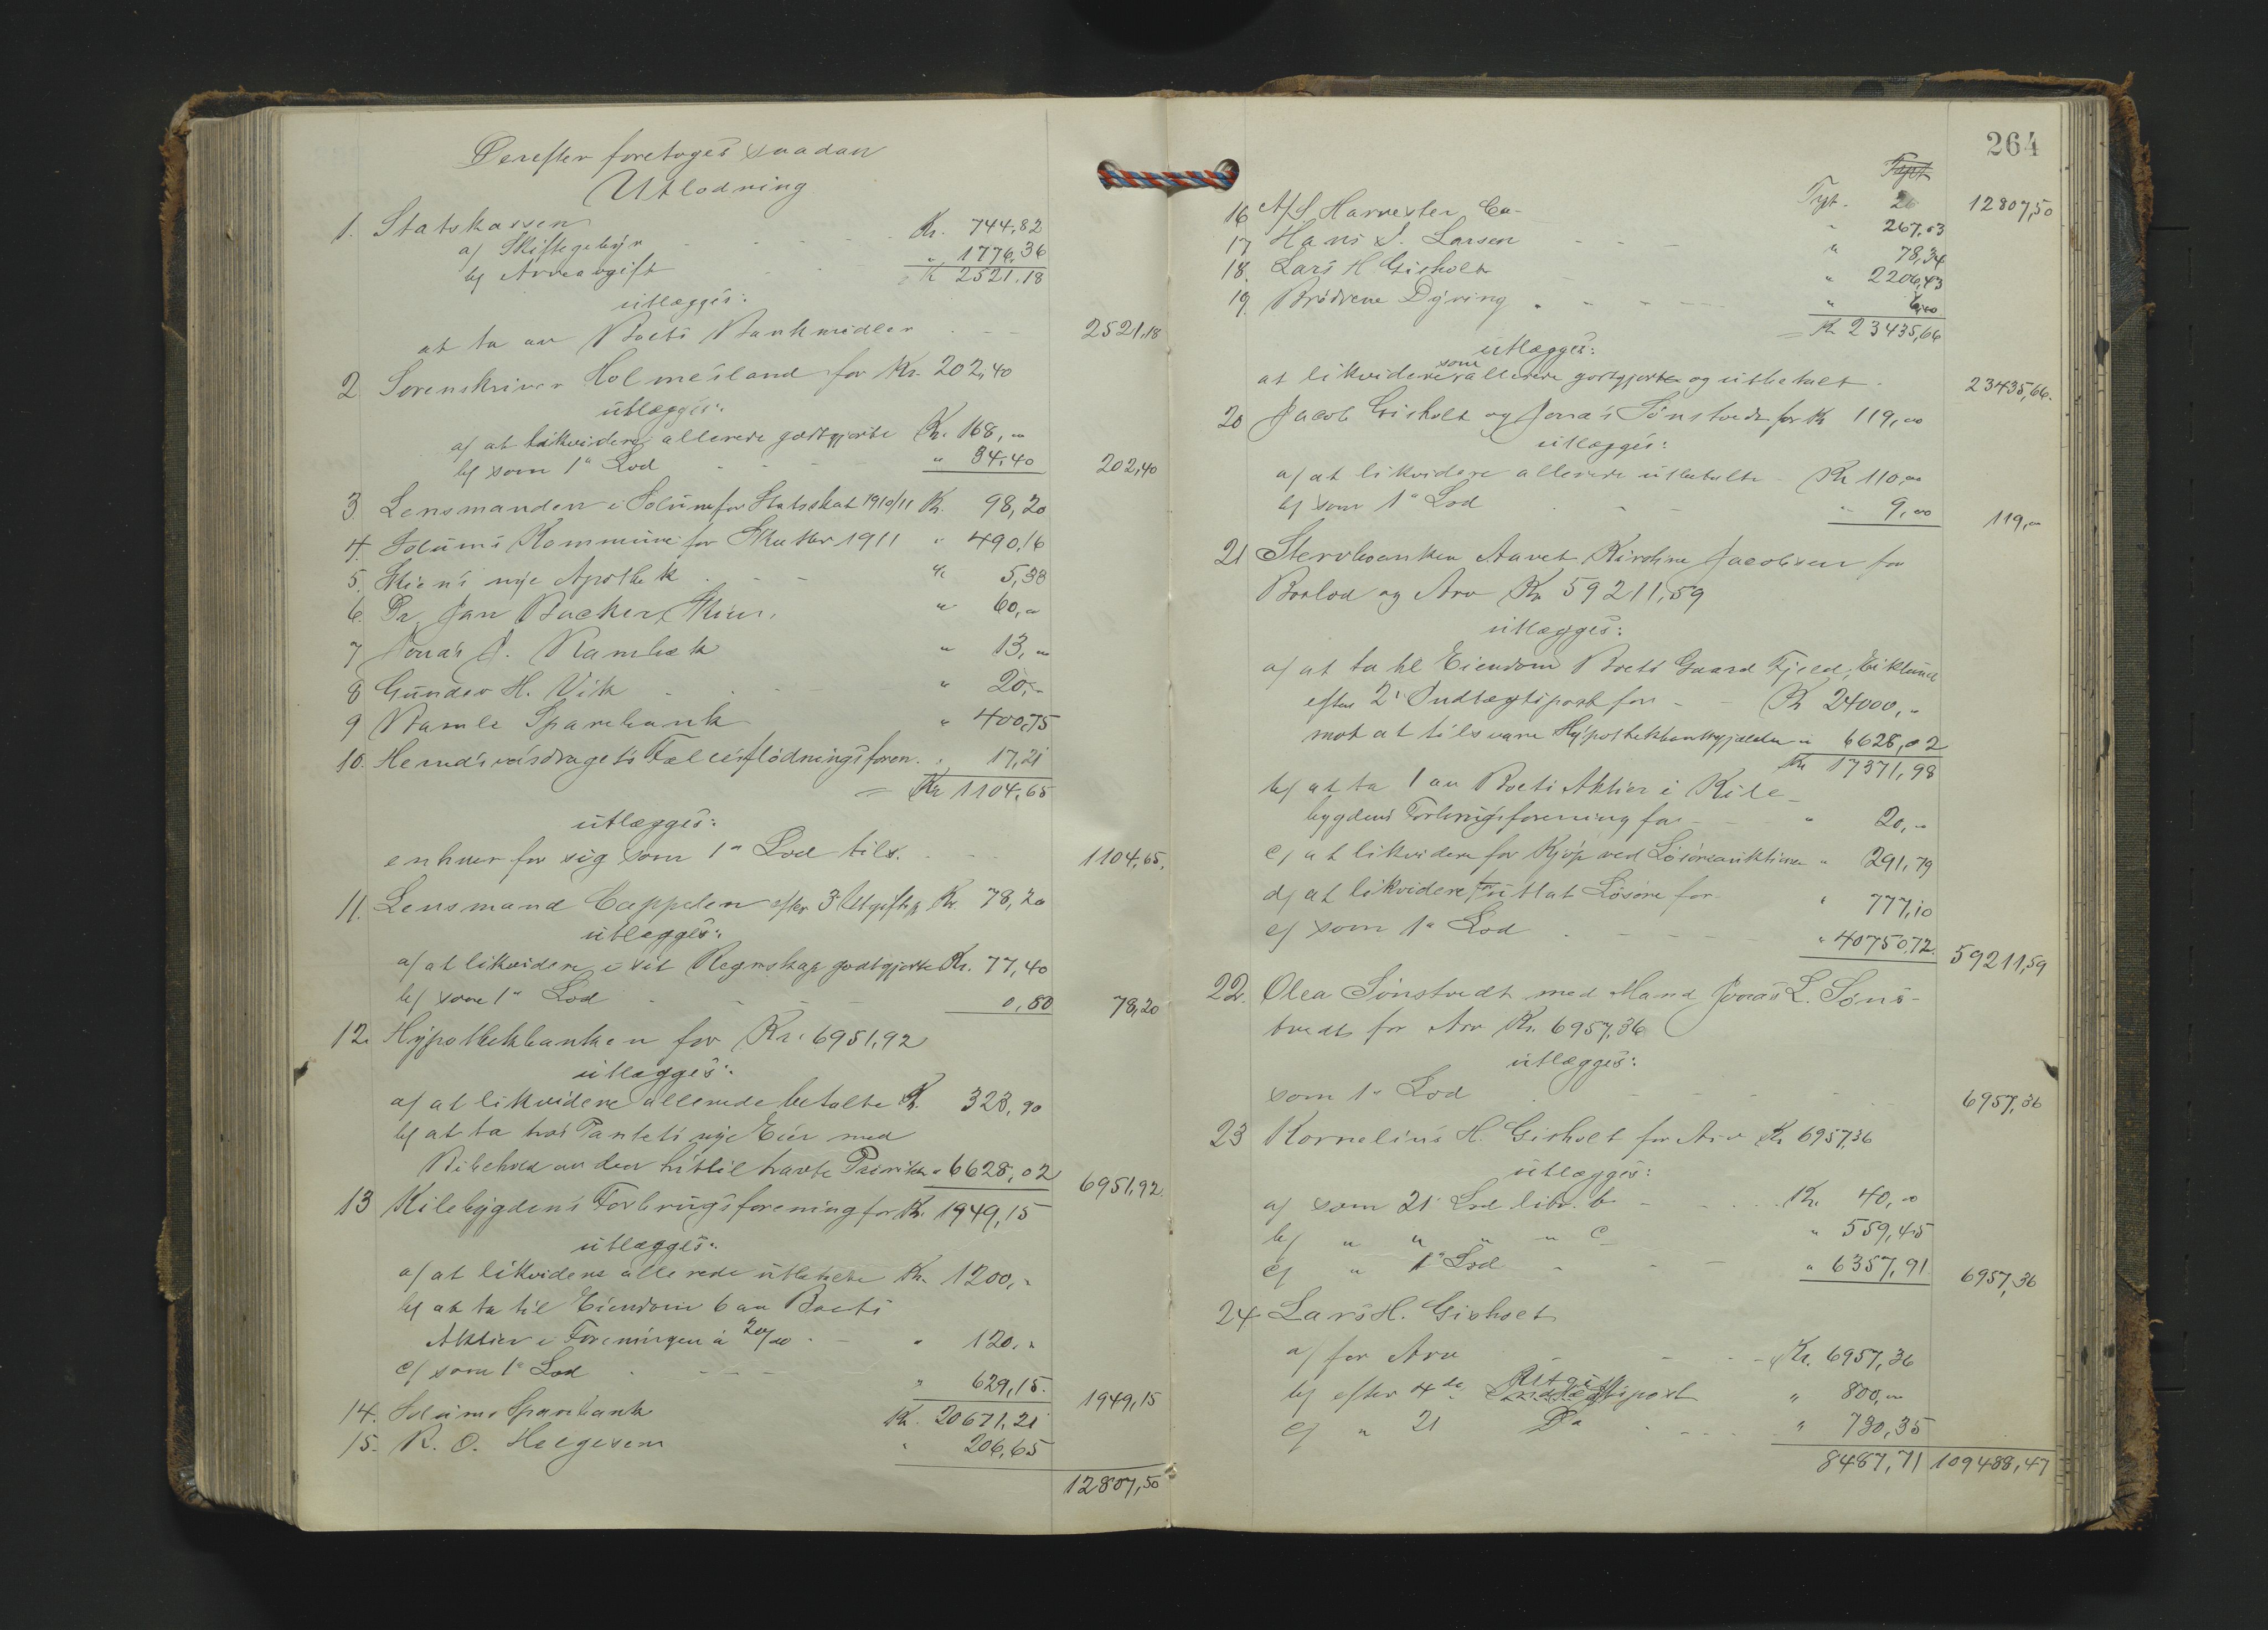 Derefter foretoges saadan
Utlodning
1. Statskassen
a/ Skiftegebyr - - - - Kr. 744,82
b/ Arveavgift - - " 1776,36
= K 2521,18
utlægges:
at ta av Boets Bankmidler - - - 2521,18
2 Sorenskriver Holmesland for Kr. 202,40
utlægges:
a/ at likvidere allerede godtgjorte Kr. 168,00
b/ som 1ᵃ Lod - - - " 34,40 202,40
3. Lensmanden i Solum for Statsskat 1910/11 K. 98,20
4. Solums Kommune for Skatter 1911 " 490,16
5. Skiens nye Apothek - - - " 5,33
6. Dr. Jan Backer, Skien, " 60,00
7 Jonas J. Rambæk " 13,00
8 Gunder H. Vik - - - " 20,-
9 Bamle Sparebank " 400,75
10. Herredsvasdragets Fællesflødningsforen. " 17,21
= Kr 1104,65
utlægges:
enhver for sig som 1ᵃ Lod tils. - - - 1104,65.
11. Lensmand Cappelen efter 3' Utgiftsp. Kr. 78,20
utlægges:
a/ at likvidere i sit Regnskap godtgjorte Kr. 77,40
b/ som 1ᵃ Lod - - - 0,80 78,20
12. Hypothekbanken for Kr. 6951,92
utlægges:
a/ at likvidere allerede betalte K. 323,90
b/ at ta hos Pantets nye Eier med
Bibehold av den hittil havte Prioritet " 6628,02 6951,92
13 Kilebygdens Forbrugsforening for K. 1949,15
utlægges:
a/ at likvidere allerede utbetalte Kr. 1200,-
b/ at ta til Eiendom 6 av Boets
Aktier i Foreningen à 20/00 - - " 120,-
c/ som 1ᵃ Lod - - - " 629,15. 1949,15
14. Solums Sparebank Kr. 20671,21
15. R. O. Helgesen " 206,65
12807,50
264
Fryt
16 A/S. Harvester Co- Fryt. 20 12807,50
17 Hans S. Larsen - - - " 267,03
18. Lars H. Gisholt - " 78,34
19. Brødrene Dyring - - - - " 2206,43
" 6,00
= K 23435,66
utlægges:
at likvidere som allerede godtgjorte og utbetalt. 23435,66.
20 Jacob Gisholt og Jonas Sønstvedt for Kr 119,00
utlægges:
a/ at likvidere allerede utbetalte - Kr 110,00
b/ som 1ᵃ Lod - - - " 9,00 119,00
21 Stervboenken Aavet Kirstine Jacobsen for
Boslod og Arv Kr 59211,59
utlægges:
a/ at ta til Eiendom Boets Gaard Fjeld, Eiklund
efter 2' Indtægtspost for - - Kr 24000,-
mot at tilsvare Hypothekbankgjælden " 6628,02
Kr 17371,98
b/ at ta 1 av Boets Aktier i Kile-
bygdens Forbrugsforening for - - " 20,-
c/ at likvidere for Kjøp ved Løsøreauktionen " 291,79
d/ at likvidere for utlat Løsøre for " 777,10
e/ som 1ᵃ Lod - - - - " 40750,72. 59211,59
22. Olea Sønstvedt med Mand Jonas L. Søns-
tvedt for Arv Kr. 6957,36
utlægges:
som 1ᵃ Lod - - - - - 6957,36
23 Kornelius H. Gisholt for Arv Kr 6957,36
utlægges:
a/ som 21' Lod litr. b - - - Kr. 40,00
b/ " " " " c " 559,45
c/ " 1ᵃ Lod - - - " 6357,91 6957,36
24 Lars H. Gisholt
a/ for Arv - - - Kr. 6957,36
b/ efter 4de Utgiftspost " 800,00
c/ " 21 Do - - - " 730,35
8487,71 109488,47